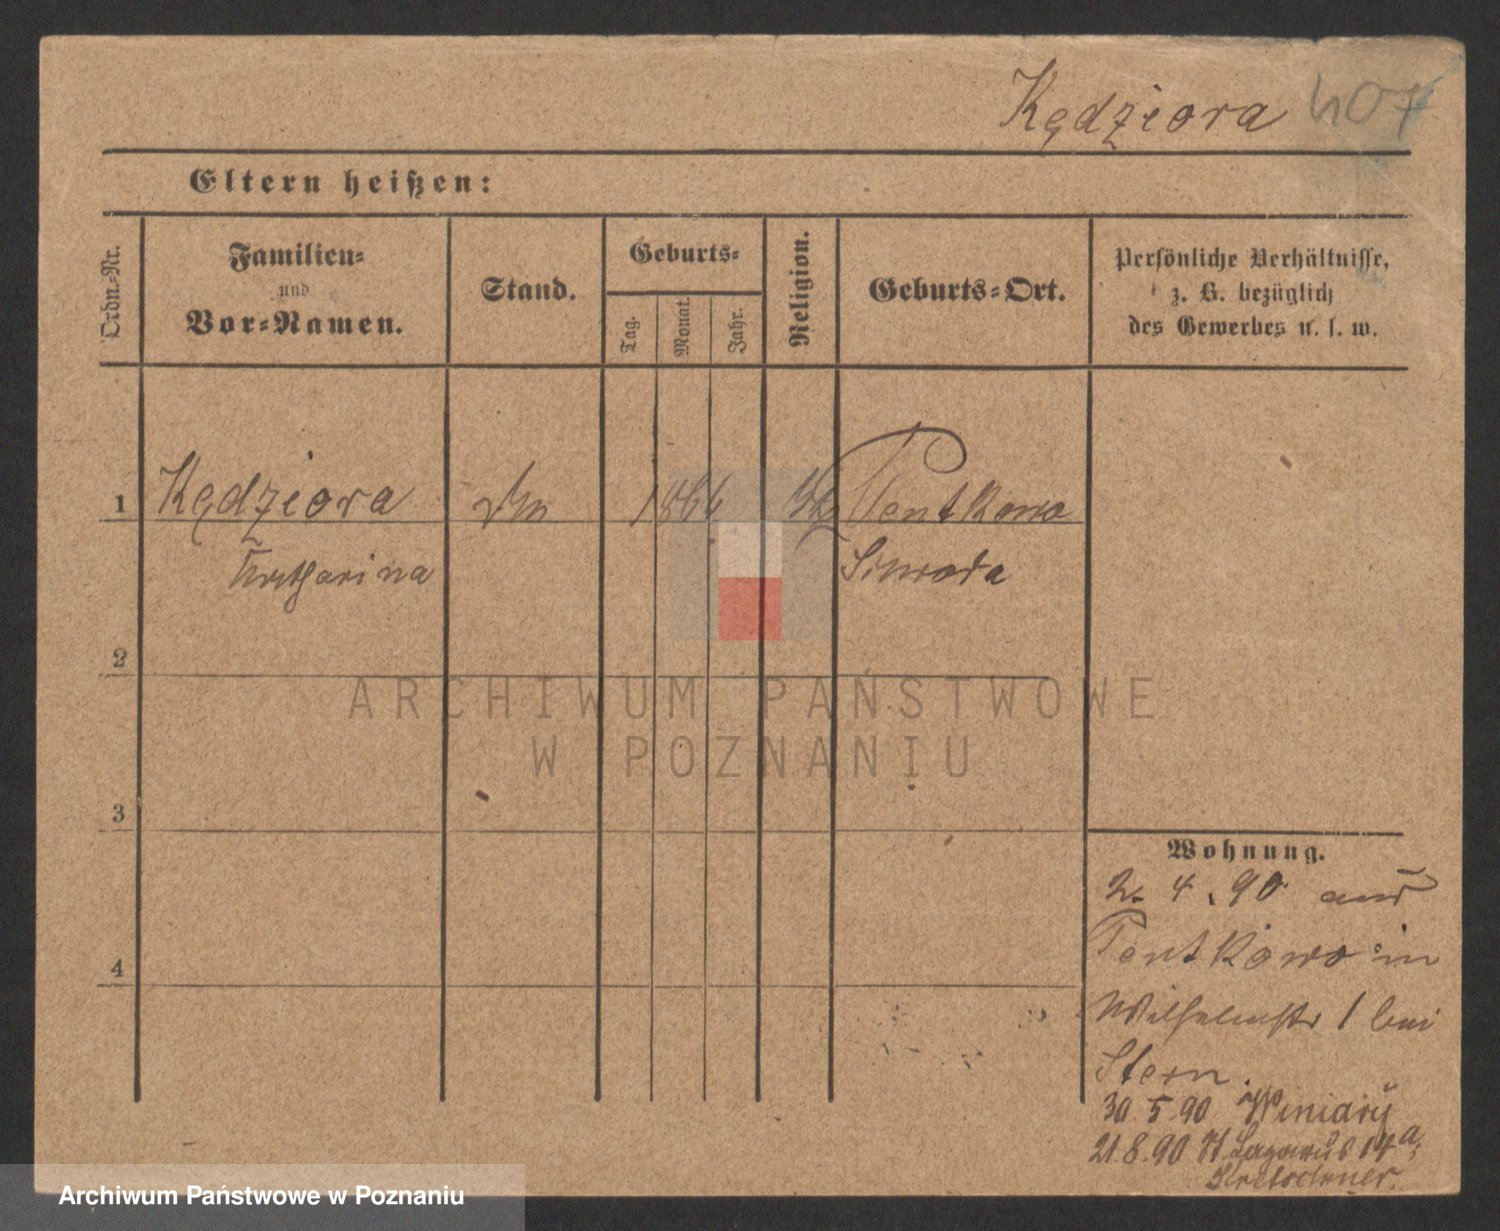 Kędziora 407
Eltern heißen:
Ordn.-Nr.
Familien-
und
Vor-Namen.
Stand.
Geburts-
Tag.
Monat.
Jahr.
Religion.
Geburts-Ort.
Persönliche Verhältnisse,
z. B. bezüglich
des Gewerbes u. s. w.
1 Kędziora 1866 Pentkowo
Katharina Schroda
2
ARCHIWUM PAŃSTWOWE
W POZNANIU
3
Wohnung.
2. 4. 90 aus
Pentkowo in
Wilhelmstr 1 bei
Stern.
4
30.5.90 Winiary
21.8.90 St Lazarus 14a
Kretschmer.
Archiwum Państwowe w Poznaniu